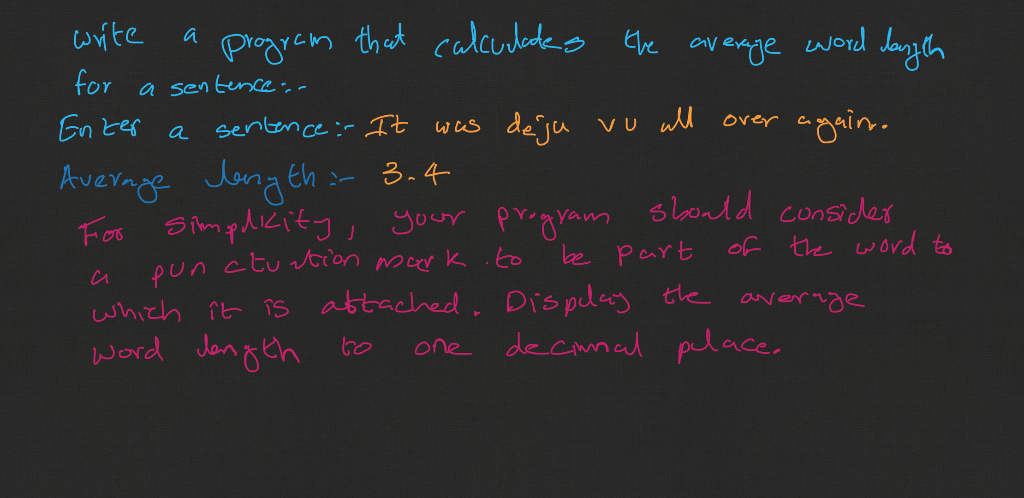 write a program that calculates the average word length
for a sentence:--
Enter a sentence:- It was deja vu all over again.
Average length:- 3.4
For simplicity, your program should consider
a punctuation mark to be part of the word to
which it is attached. Display the average
word length to one decimal place.